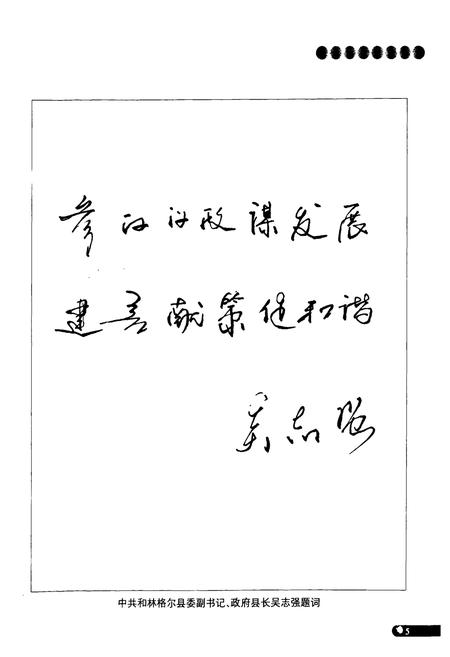 参政议政谋发展
建言献策促和谐
吴志强
中共和林格尔县委副书记、政府县长吴志强题词
5